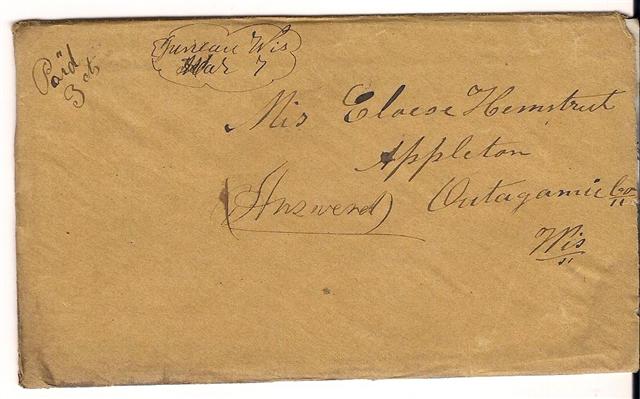 Paid
3 cts
Juneau Wis
Mar 7
Mis Eloese Hemstreet
Appleton
(Answerd) Outagamie Co
Wis